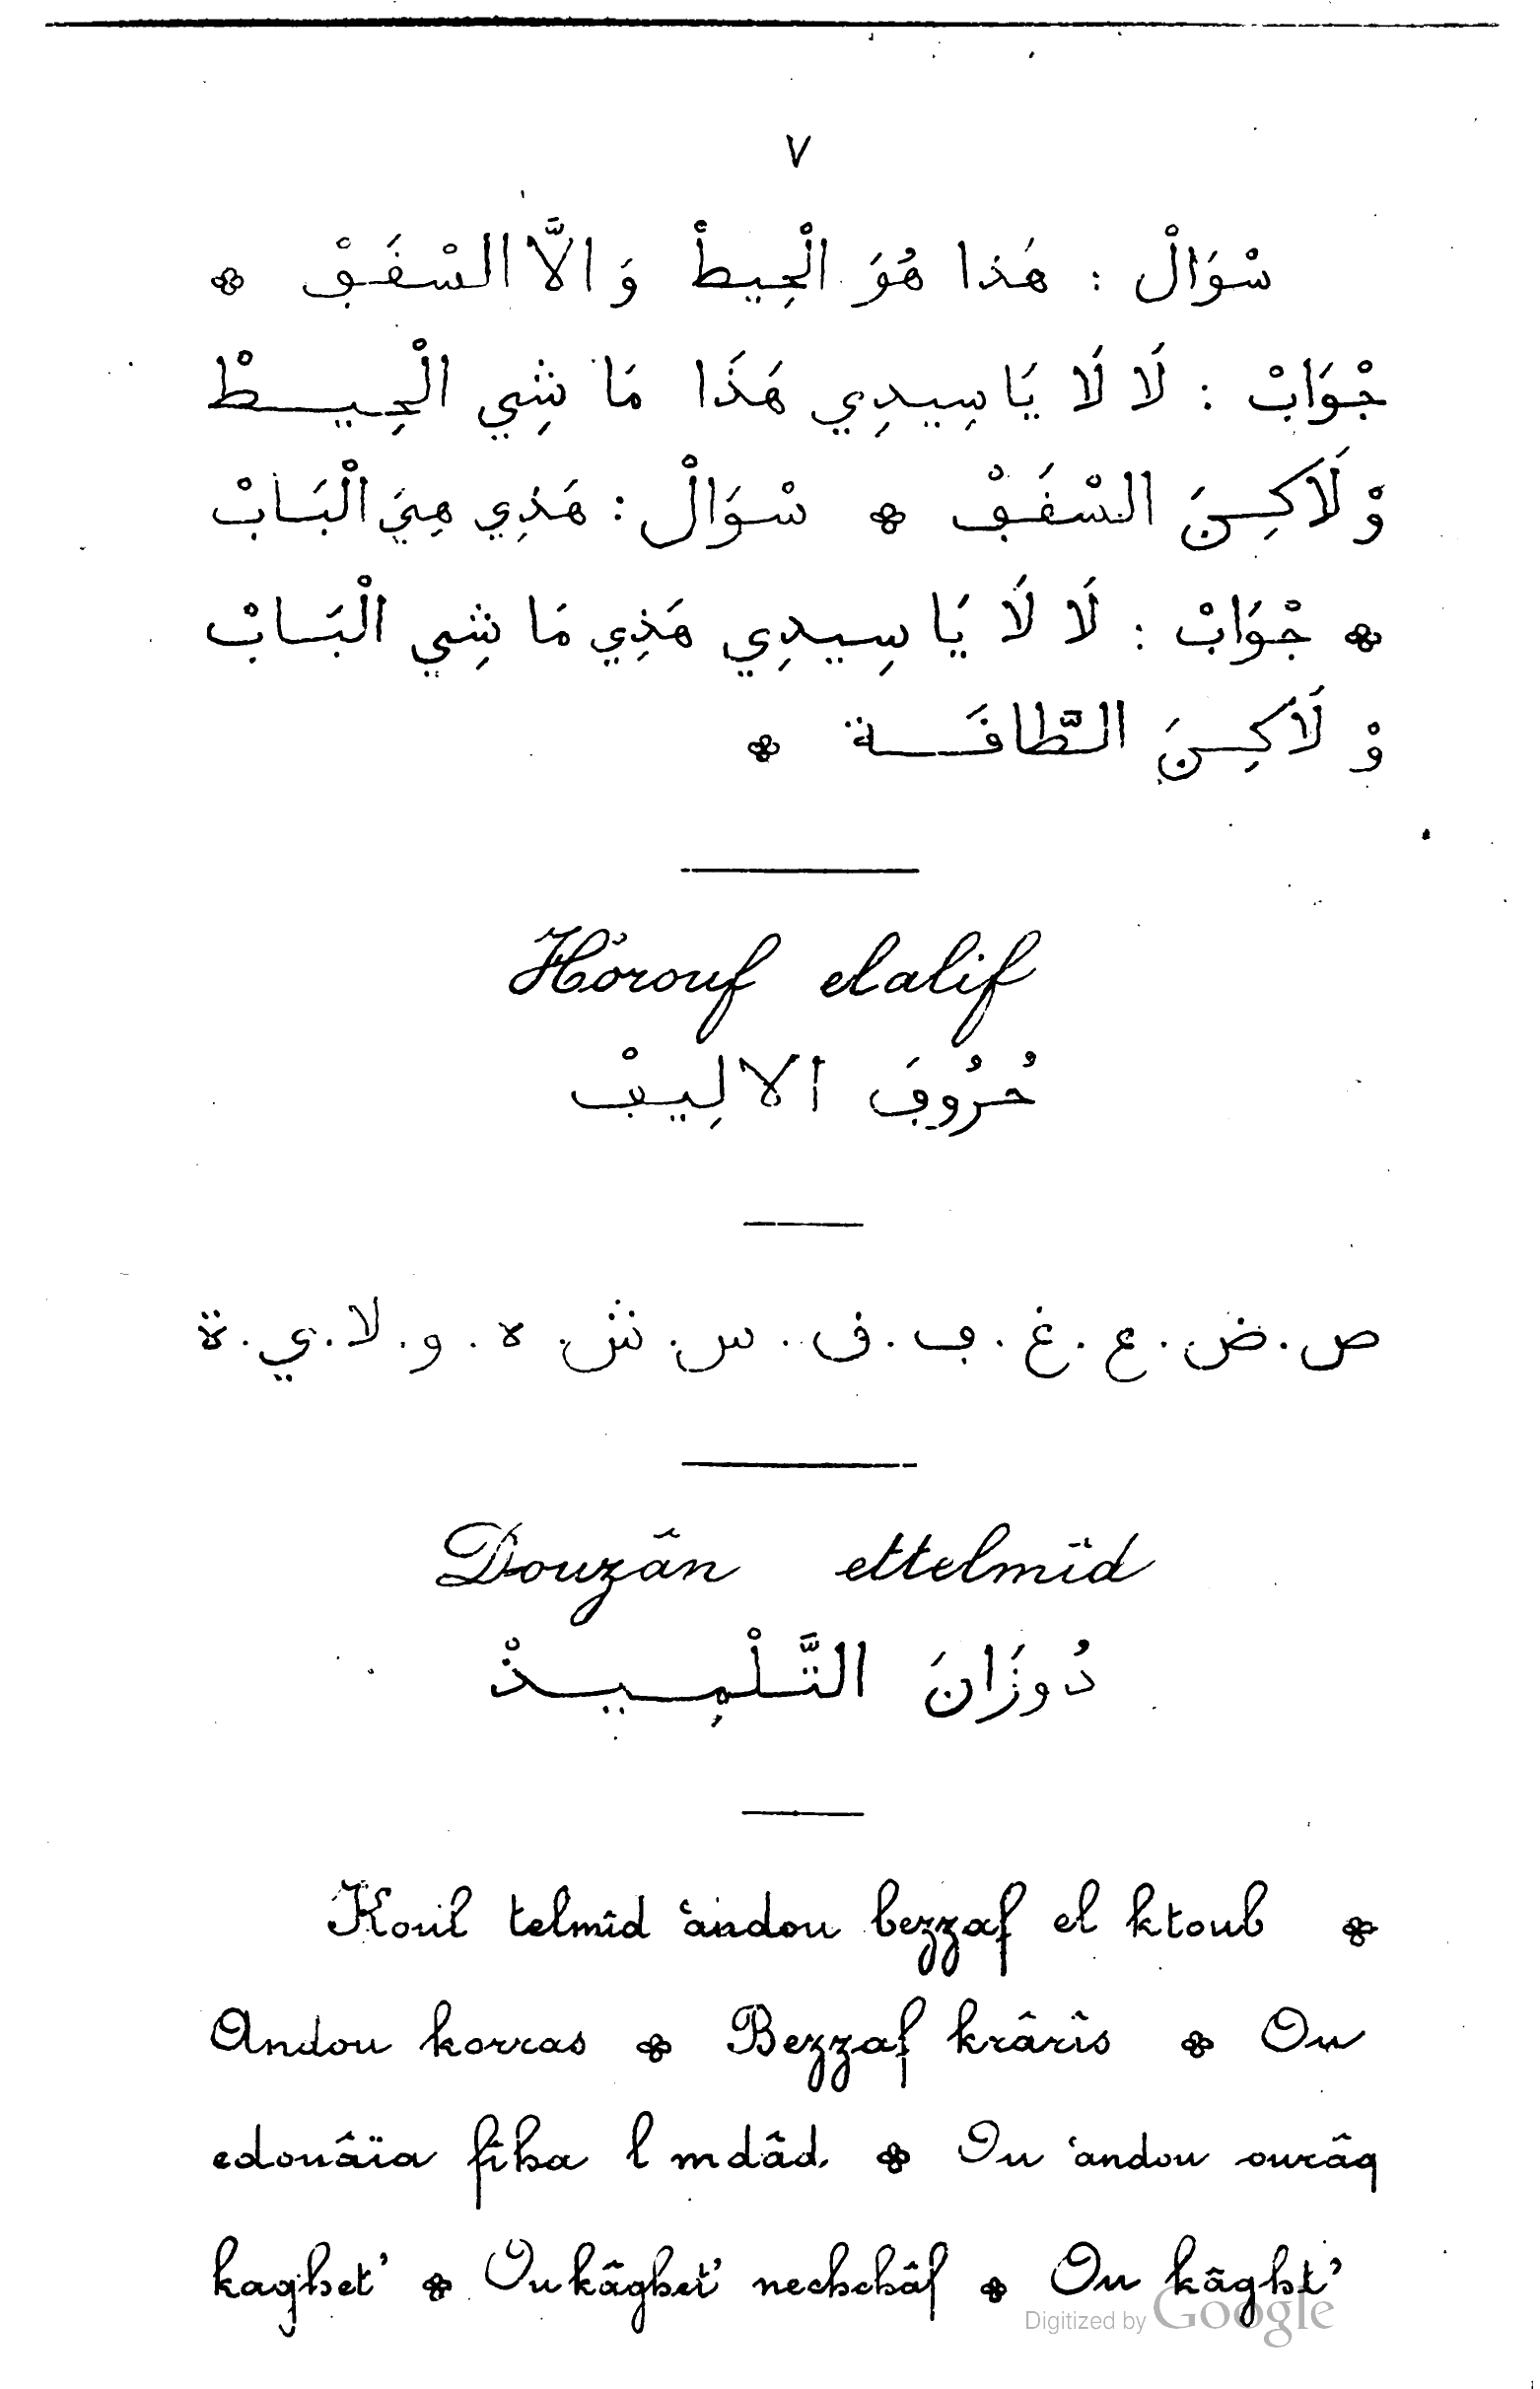 ٧
سْوَالْ : هَذا هُوَ الْحِيطْ وَالاَّ السْفَفْ ❊
جْوَابْ : لَا لَا يَا سِيدِي هَذَا مَا شِي الْحِيطْ
وْلَاكِنَ السْفَفْ ❊ سْوَالْ : هَذِي هِيَ الْبَابْ
❊ جْوَابْ : لَا لَا يَا سِيدِي هَذِي مَا شِي الْبَابْ
وْ لَاكِنَ الطَّافَة ❊
Hòrouf elalif
حُرُوفَ الالِيفْ
ص . ض . ع . غ . ڢ . ف . س . ش . ه . و . لا . ي . ة
Douzân ettelmîd
دُوزَانَ التَّلْمِيذْ
Koul telmîd ʿandou bezzaf el ktoub ❊
Andou korras ❊ Bezzaf krârîs ❊ Ou
edouâïa fîha l mdâd. ❊ Ou ʿandou ourâq
kaghet’ ❊ Ou kâghet’ nechchâf ❊ Ou kâght’
Digitized by Google